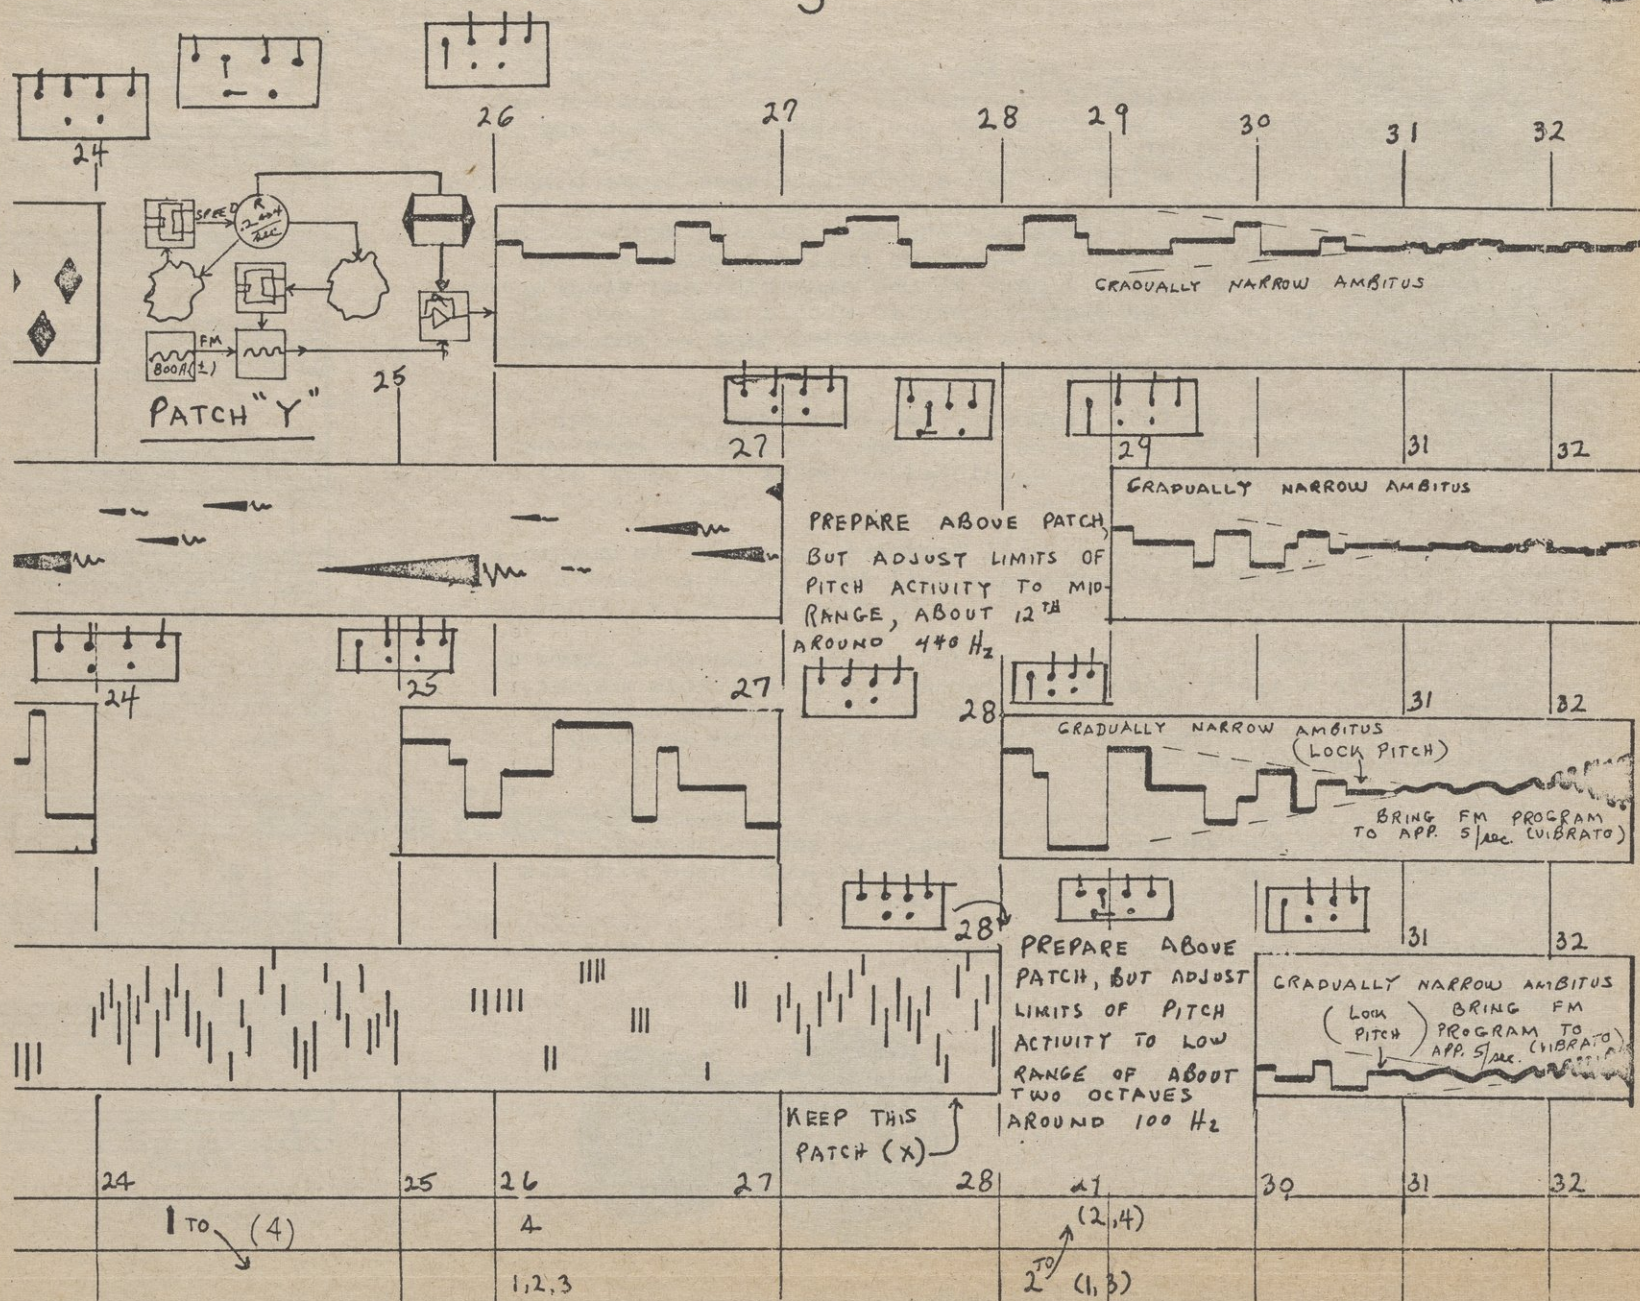 24
26
27
28
29
30
31
32
SPEED
R
FM
(±)
25
PATCH "Y"
GRADUALLY NARROW AMBITUS
27
29
31
32
PREPARE ABOVE PATCH,
BUT ADJUST LIMITS OF
PITCH ACTIVITY TO MID-
RANGE, ABOUT 12TH
AROUND 440 Hz
GRADUALLY NARROW AMBITUS
24
25
27
28
31
32
GRADUALLY NARROW AMBITUS
(LOCK PITCH)
BRING FM PROGRAM
TO APP. 5/sec. (VIBRATO)
28
31
32
PREPARE ABOVE
PATCH, BUT ADJUST
LIMITS OF PITCH
ACTIVITY TO LOW
RANGE OF ABOUT
TWO OCTAVES
AROUND 100 Hz
GRADUALLY NARROW AMBITUS
(LOCK PITCH)
BRING FM
PROGRAM TO
APP. 5/sec. (VIBRATO)
KEEP THIS
PATCH (X)
24
25
26
27
28
29
30
31
32
1 TO (4)
4
(2,4)
1,2,3
2 TO (1,3)